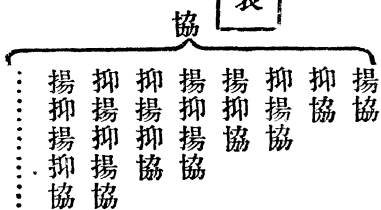 協
揚協
抑協
抑揚協
揚抑協
揚抑揚協
抑揚抑協
抑揚抑揚協
揚抑揚抑協
……